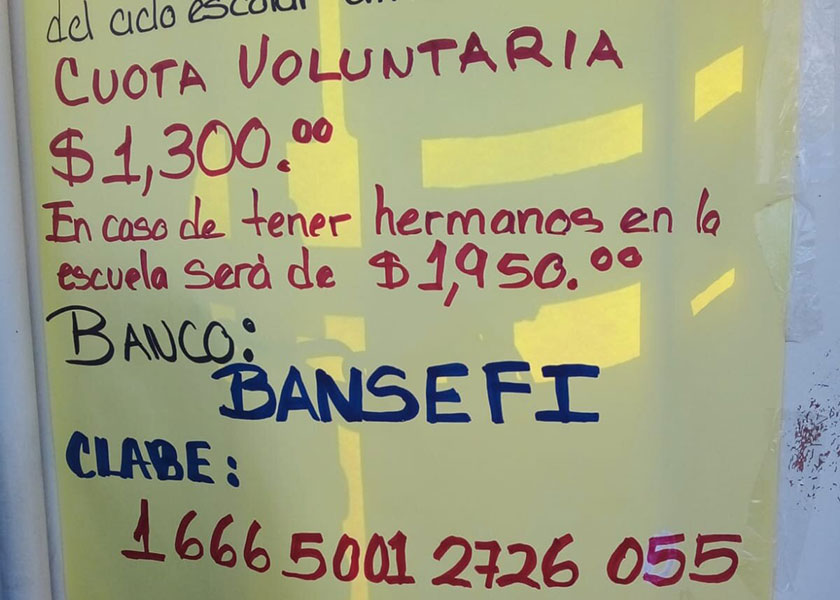 del ciclo escolar
CUOTA VOLUNTARIA
$1,300.00
En caso de tener hermanos en la
escuela será de $1,950.00
BANCO:
BANSEFI
CLABE:
1666 5001 2726 055